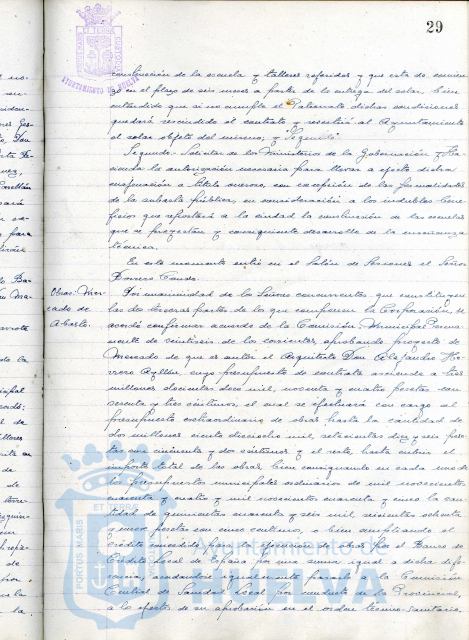 29
construcción de la escuela y talleres referidos y que esta de comien-
zo en el plazo de seis meses a partir de la entrega del solar, bien
entendido que si no cumple el Patronato dichas condiciones
quedará rescindido el contrato y revertirá al Ayuntamiento
el solar objeto del mismo; y Segundo
Segundo.- Solicitar de los Ministerios de la Gobernación y Ha-
cienda la autorización necesaria para llevar a efecto dicha
enajenación a título oneroso, con excepción de las formalidades
de la subasta pública, en consideración a los indudables bene-
ficios que reportará a la ciudad la construcción de las escuelas
que se proyectan y consiguiente desarrollo de la enseñanza
técnica.
En este momento entró en el Salón de Sesiones el Señor
Borrero Conde.
Obras: Mer-
cado de
Abasto.
Por unanimidad de los Señores concurrentes que constituyen
las dos terceras partes de los que componen la Corporación, se
acordó confirmar acuerdo de la Comisión Municipal Perma-
nente de veintiseis de los corrientes, aprobando proyecto de
Mercado de que es autor el Arquitecto Don Alejandro He-
rrero Ayllón cuyo presupuesto de contrata asciende a tres
millones doscientas doce mil, noventa y cuatro pesetas con
sesenta y tres céntimos, el cual se efectuará con cargo al
presupuesto extraordinario de obras hasta la cantidad de
dos millones ciento dieciocho mil, seiscientas diez y seis pese-
tas con cincuenta y dos céntimos y el resto, hasta cubrir el
importe total de las obras, bien consignando en cada uno de
los presupuestos municipales ordinarios de mil novecientos
cuarenta y cuatro y mil novecientos cuarenta y cinco la can-
tidad de cuarenta y seis mil setecientas
y pesetas con cinco céntimos, o bien ampliando el
crédito concedido para la ejecución de obras por el Banco de
Crédito Local de España por una suma igual a dicha dife-
rencia, acordándose igualmente pasarlo a la Comisión
Central de Sanidad Local por conducto de la Provincial,
a los efectos de su aprobación en el orden técnico-sanitario.
AYUNTAMIENTO DE HUELVA
PORTUS MARIS ET
Ayuntamiento de
HUELVA